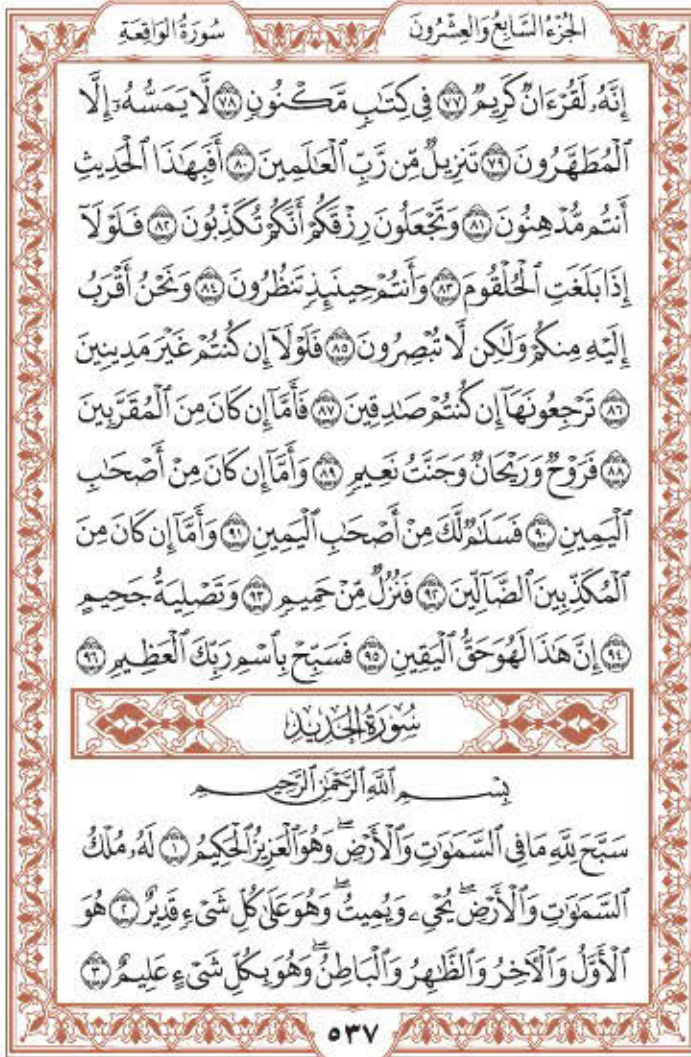 سُورَةُ الوَاقِعَةِ
الجُزْءُ السَّابِعُ وَالعِشْرُونَ
إِنَّهُۥ لَقُرْءَانٌ كَرِيمٌ ٧٧ فِي كِتَٰبٍ مَّكْنُونٍ ٧٨ لَّا يَمَسُّهُۥٓ إِلَّا
ٱلْمُطَهَّرُونَ ٧٩ تَنزِيلٌ مِّن رَّبِّ ٱلْعَٰلَمِينَ ٨٠ أَفَبِهَٰذَا ٱلْحَدِيثِ
أَنتُم مُّدْهِنُونَ ٨١ وَتَجْعَلُونَ رِزْقَكُمْ أَنَّكُمْ تُكَذِّبُونَ ٨٢ فَلَوْلَآ
إِذَا بَلَغَتِ ٱلْحُلْقُومَ ٨٣ وَأَنتُمْ حِينَئِذٍ تَنظُرُونَ ٨٤ وَنَحْنُ أَقْرَبُ
إِلَيْهِ مِنكُمْ وَلَٰكِن لَّا تُبْصِرُونَ ٨٥ فَلَوْلَآ إِن كُنتُمْ غَيْرَ مَدِينِينَ
٨٦ تَرْجِعُونَهَآ إِن كُنتُمْ صَٰدِقِينَ ٨٧ فَأَمَّآ إِن كَانَ مِنَ ٱلْمُقَرَّبِينَ
٨٨ فَرَوْحٌ وَرَيْحَانٌ وَجَنَّتُ نَعِيمٍ ٨٩ وَأَمَّآ إِن كَانَ مِنْ أَصْحَٰبِ
ٱلْيَمِينِ ٩٠ فَسَلَٰمٌ لَّكَ مِنْ أَصْحَٰبِ ٱلْيَمِينِ ٩١ وَأَمَّآ إِن كَانَ مِنَ
ٱلْمُكَذِّبِينَ ٱلضَّآلِّينَ ٩٢ فَنُزُلٌ مِّنْ حَمِيمٍ ٩٣ وَتَصْلِيَةُ جَحِيمٍ
٩٤ إِنَّ هَٰذَا لَهُوَ حَقُّ ٱلْيَقِينِ ٩٥ فَسَبِّحْ بِٱسْمِ رَبِّكَ ٱلْعَظِيمِ ٩٦
سُورَةُ الحَدِيدِ
بِسْمِ ٱللَّهِ ٱلرَّحْمَٰنِ ٱلرَّحِيمِ
سَبَّحَ لِلَّهِ مَا فِي ٱلسَّمَٰوَٰتِ وَٱلْأَرْضِۖ وَهُوَ ٱلْعَزِيزُ ٱلْحَكِيمُ ١ لَهُۥ مُلْكُ
ٱلسَّمَٰوَٰتِ وَٱلْأَرْضِۖ يُحْيِۦ وَيُمِيتُۖ وَهُوَ عَلَىٰ كُلِّ شَيْءٍ قَدِيرٌ ٢ هُوَ
ٱلْأَوَّلُ وَٱلْءَاخِرُ وَٱلظَّٰهِرُ وَٱلْبَاطِنُۖ وَهُوَ بِكُلِّ شَيْءٍ عَلِيمٌ ٣
٥٣٧